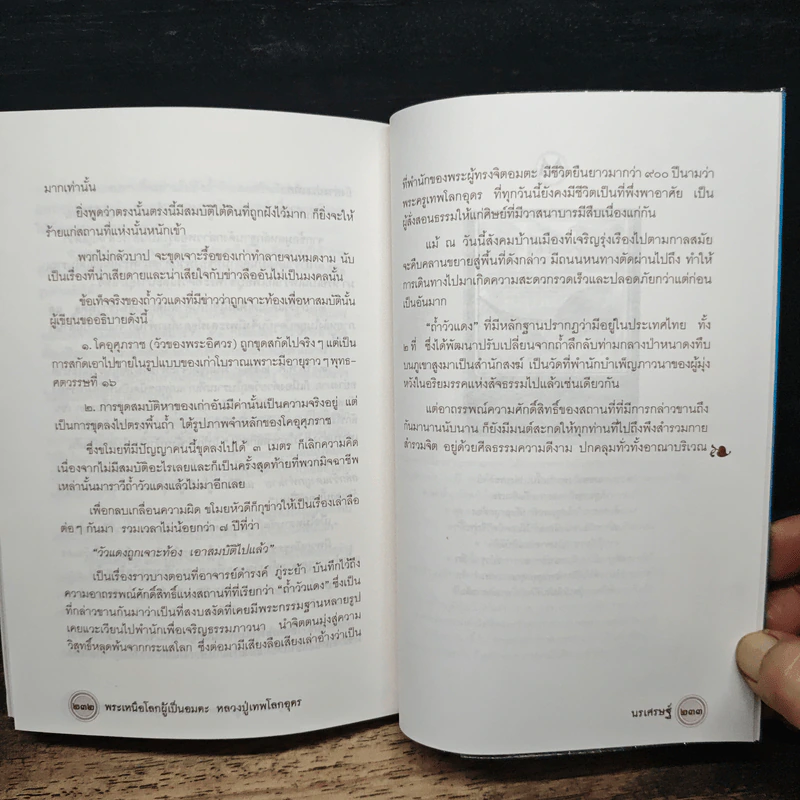 มากเท่านั้น
ยิ่งพูดว่าตรงนั้นตรงนี้มีสมบัติใต้ดินที่ถูกฝังไว้มาก ก็ยิ่งจะให้
ร้ายแก่สถานที่แห่งนั้นหนักเข้า
พวกไม่กลัวบาป จะขุดเจาะรื้อของเก่าทำลายจนหมดงาม นับ
เป็นเรื่องที่น่าเสียดายและน่าเสียใจกับข่าวลืออันไม่เป็นมงคลนั้น
ข้อเท็จจริงของถ้ำวัวแดงที่มีข่าวว่าถูกเจาะท้องเพื่อหาสมบัตินั้น
ผู้เขียนขออธิบายดังนี้
๑. โคอุศุภราช (วัวของพระอิศวร) ถูกขุดสกัดไปจริงๆ แต่เป็น
การสกัดเอาไปขายในรูปแบบของเก่าโบราณเพราะมีอายุราวๆ พุทธ-
ศตวรรษที่ ๑๖
๒. การขุดสมบัติหาของเก่าอันมีค่านั้นเป็นความจริงอยู่ แต่
เป็นการขุดลงไปตรงพื้นถ้ำ ใต้รูปภาพจำหลักของโคอุศุภราช
ซึ่งขโมยที่มีปัญญาคนนี้ขุดลงไปได้ ๓ เมตร ก็เลิกความคิด
เนื่องจากไม่มีสมบัติอะไรเลยและก็เป็นครั้งสุดท้ายที่พวกมิจฉาชีพ
เหล่านั้นมาราวีถ้ำวัวแดงแล้วไม่มาอีกเลย
เพื่อกลบเกลื่อนความผิด ขโมยหัวดีก็กุข่าวให้เป็นเรื่องเล่าลือ
ต่อๆ กันมา รวมเวลาไม่น้อยกว่า ๗ ปีที่ว่า
“วัวแดงถูกเจาะท้อง เอาสมบัติไปแล้ว”
เป็นเรื่องราวบางตอนที่อาจารย์ดำรงค์ ภู่ระย้า บันทึกไว้ถึง
ความอาถรรพณ์ศักดิ์สิทธิ์แห่งสถานที่ที่เรียกว่า “ถ้ำวัวแดง” ซึ่งเป็น
ที่กล่าวขานกันมาว่าเป็นที่สงบสงัดที่เคยมีพระกรรมฐานหลายรูป
เคยแวะเวียนไปพำนักเพื่อเจริญธรรมภาวนา นำจิตตนมุ่งสู่ความ
วิสุทธิ์หลุดพ้นจากกระแสโลก ซึ่งต่อมามีเสียงลือเสียงเล่าอ้างว่าเป็น
๒๓๒ พระเหนือโลกผู้เป็นอมตะ หลวงปู่เทพโลกอุดร
ที่พำนักของพระผู้ทรงจิตอมตะ มีชีวิตยืนยาวมากว่า ๙๐๐ ปีนามว่า
พระครูเทพโลกอุดร ที่ทุกวันนี้ยังคงมีชีวิตเป็นที่พึ่งพาอาศัย เป็น
ผู้สั่งสอนธรรมให้แก่ศิษย์ที่มีวาสนาบารมีสืบเนื่องแก่กัน
แม้ ณ วันนี้สังคมบ้านเมืองที่เจริญรุ่งเรืองไปตามกาลสมัย
จะคืบคลานขยายสู่พื้นที่ดังกล่าว มีถนนหนทางตัดผ่านไปถึง ทำให้
การเดินทางไปมาเกิดความสะดวกรวดเร็วและปลอดภัยกว่าแต่ก่อน
เป็นอันมาก
“ถ้ำวัวแดง” ที่มีหลักฐานปรากฏว่ามีอยู่ในประเทศไทย ทั้ง
๒ ที่ ซึ่งได้พัฒนาปรับเปลี่ยนจากถ้ำลึกลับท่ามกลางป่าหนาดงทึบ
บนภูเขาสูงมาเป็นสำนักสงฆ์ เป็นวัดที่พำนักบำเพ็ญภาวนาของผู้มุ่ง
หวังในอริยมรรคแห่งสัจธรรมไปแล้วเช่นเดียวกัน
แต่อาถรรพณ์ความศักดิ์สิทธิ์ของสถานที่ที่มีการกล่าวขานถึง
กันมานานนับนาน ก็ยังมีมนต์สะกดให้ทุกท่านที่ไปถึงพึงสำรวมกาย
สำรวมจิต อยู่ด้วยศีลธรรมความดีงาม ปกคลุมทั่วทั้งอาณาบริเวณ
นรเศรษฐ์ ๒๓๓